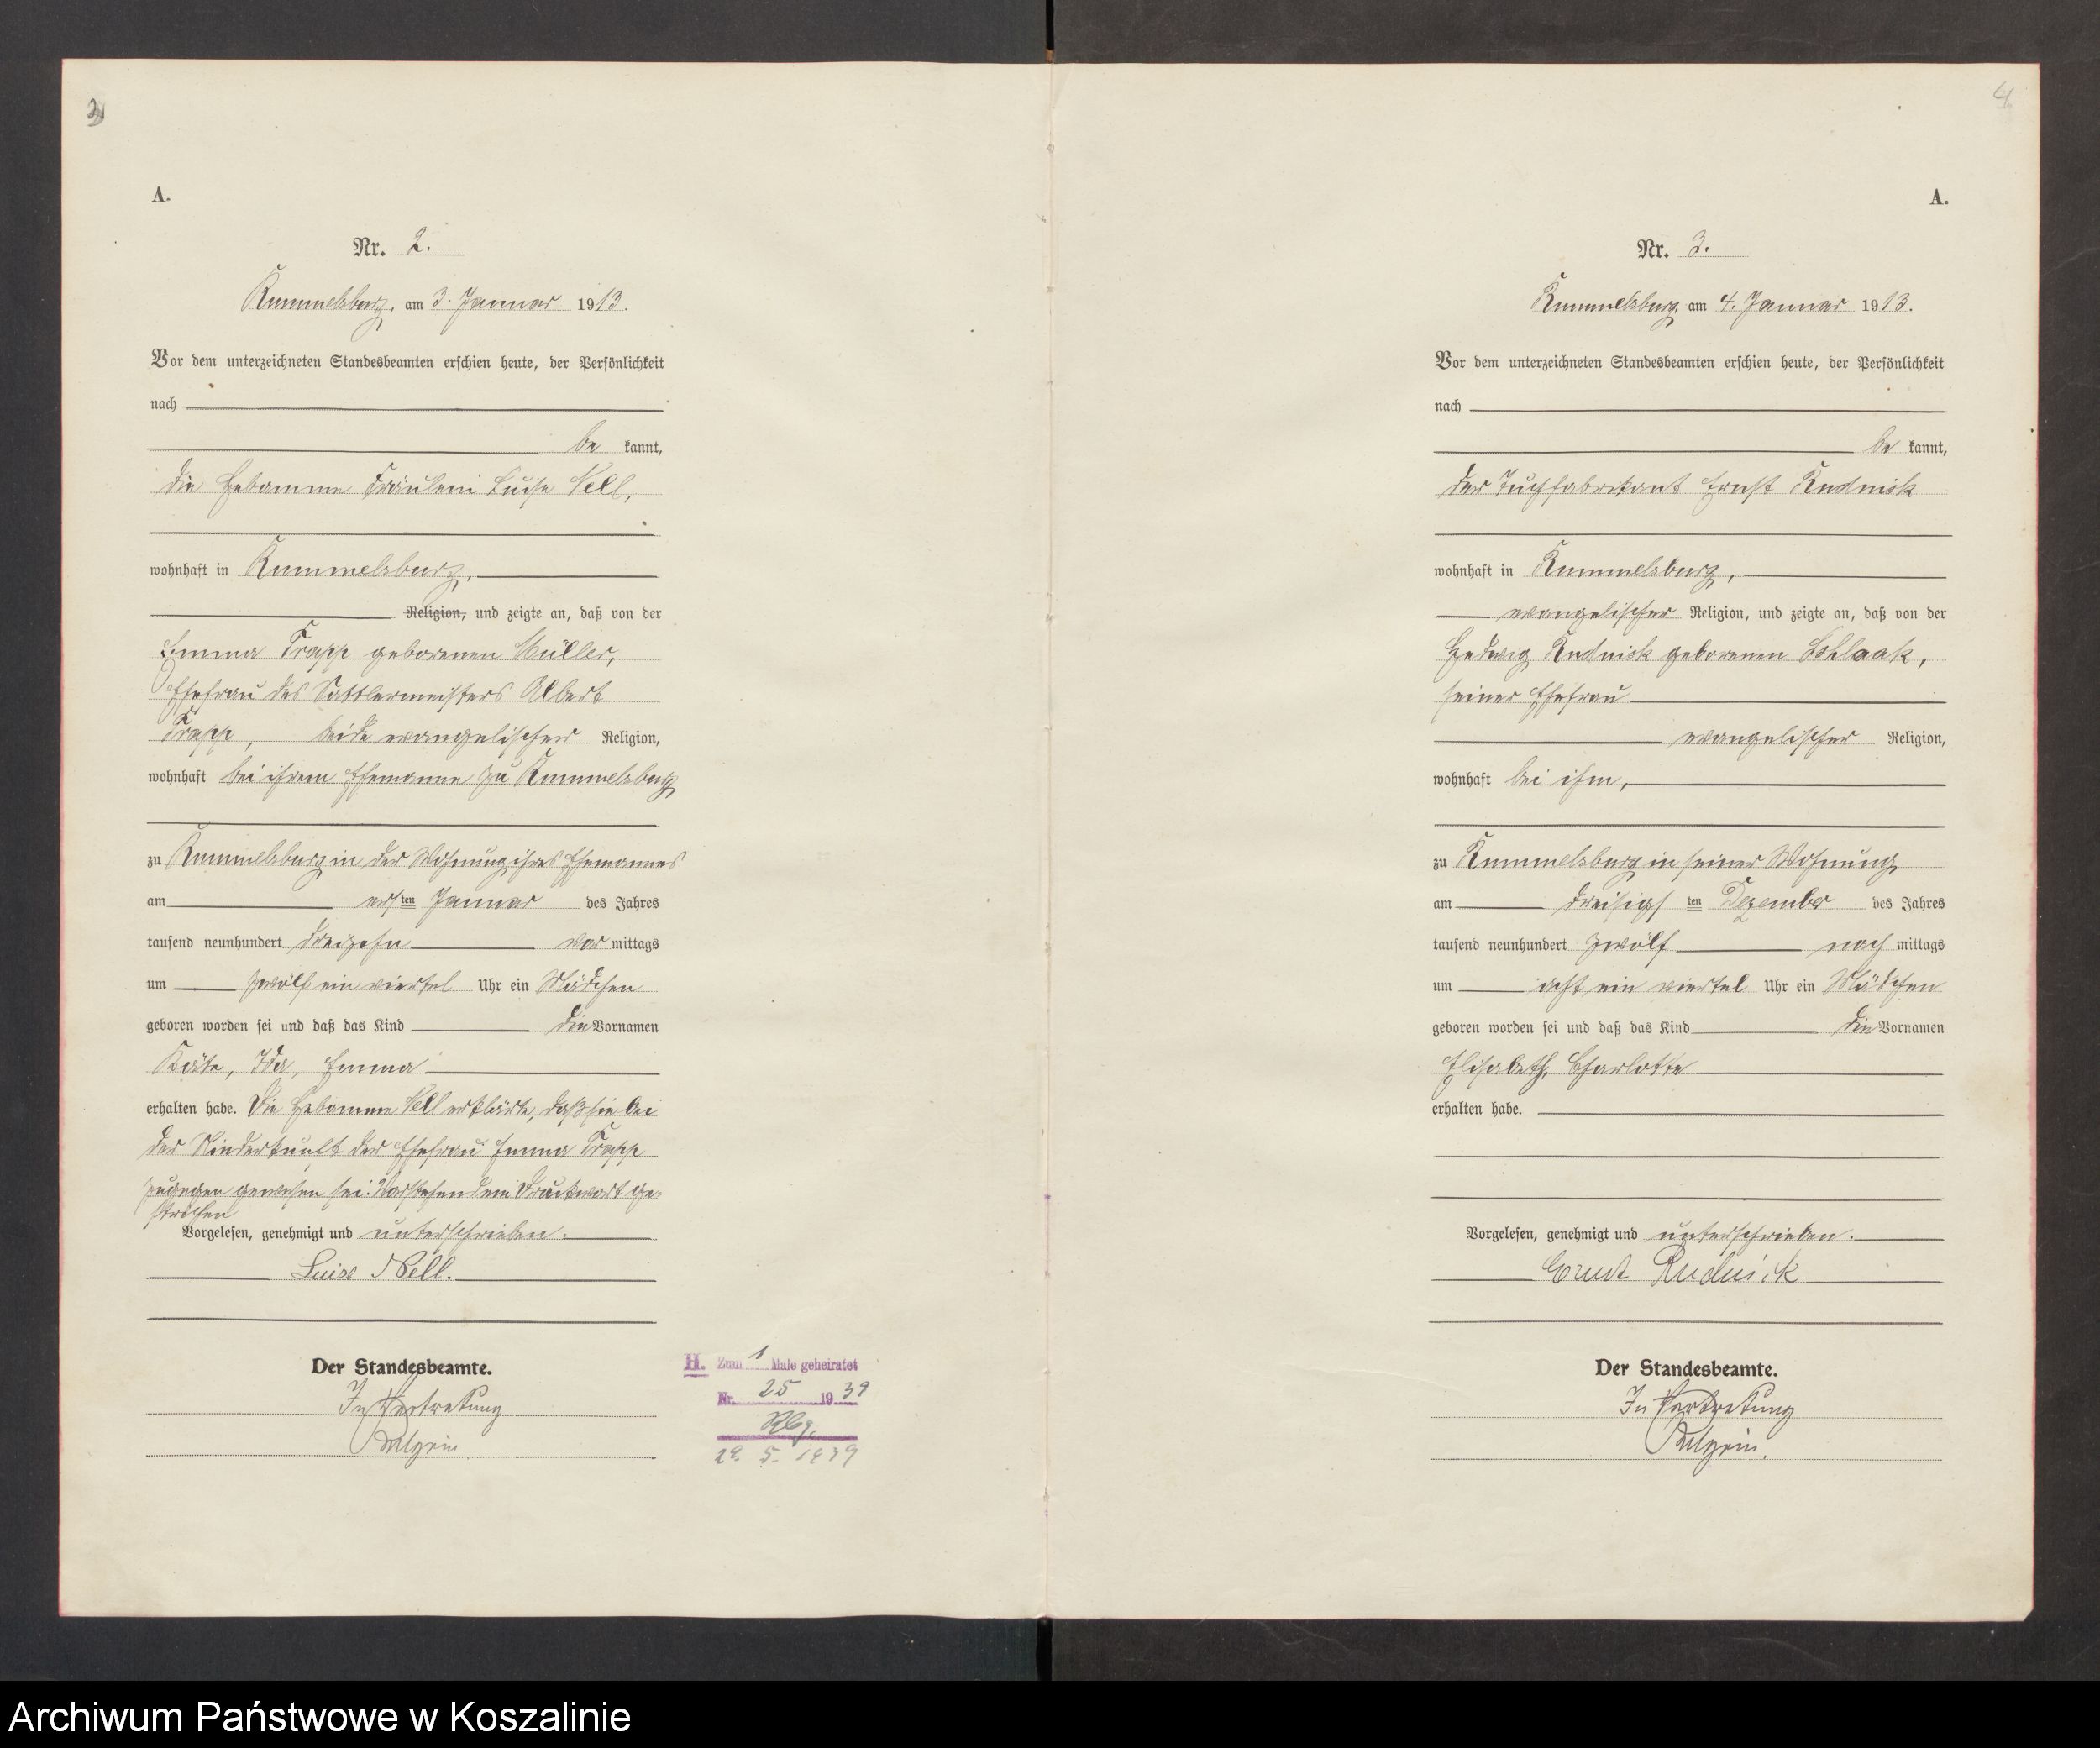 3
A.
Nr. 2.
Rummelsburg, am 3. Januar 1913.
Vor dem unterzeichneten Standesbeamten erschien heute, der Persönlichkeit
nach
be kannt,
die Hebamme Fräulein Luise Nell,
wohnhaft in Rummelsburg,
Religion, und zeigte an, daß von der
Emma Trapp geborenen Müller,
Ehefrau des Sattlermeisters Albert
Trapp, beide evangelischer Religion,
wohnhaft bei ihrem Ehemanne zu Rummelsburg
zu Rummelsburg in der Wohnung ihres Ehemannes
am ersten Januar des Jahres
tausend neunhundert dreizehn vor mittags
um zwölf ein viertel Uhr ein Mädchen
geboren worden sei und daß das Kind die Vornamen
Käte, Ida, Emma
erhalten habe. Die Hebamme Nell erklärte, daß sie bei
der Niederkunft der Ehefrau Emma Trapp
zugegen gewesen sei. Vorstehend ein Druckwort ge-
strichen
Vorgelesen, genehmigt und unterschrieben.
Luise Nell.
Der Standesbeamte.
In Vertretung
H. Zum 1 Male geheiratet
Nr. 25 1939
Rbg.
29. 5. 1939
4
A.
Nr. 3.
Rummelsburg am 4. Januar 1913.
Vor dem unterzeichneten Standesbeamten erschien heute, der Persönlichkeit
nach
be kannt,
der Tuchfabrikant Ernst Rudnick
wohnhaft in Rummelsburg,
evangelischer Religion, und zeigte an, daß von der
Hedwig Rudnick geborenen
seiner Ehefrau
evangelischer Religion,
wohnhaft bei ihm,
zu Rummelsburg in seiner Wohnung
am dreisigsten Dezember des Jahres
tausend neunhundert zwölf nach mittags
um acht ein viertel Uhr ein Mädchen
geboren worden sei und daß das Kind die Vornamen
Elisabeth, Charlotte
erhalten habe.
Vorgelesen, genehmigt und unterschrieben.
Ernst Rudnick
Der Standesbeamte.
In Vertretung
Archiwum Państwowe w Koszalinie